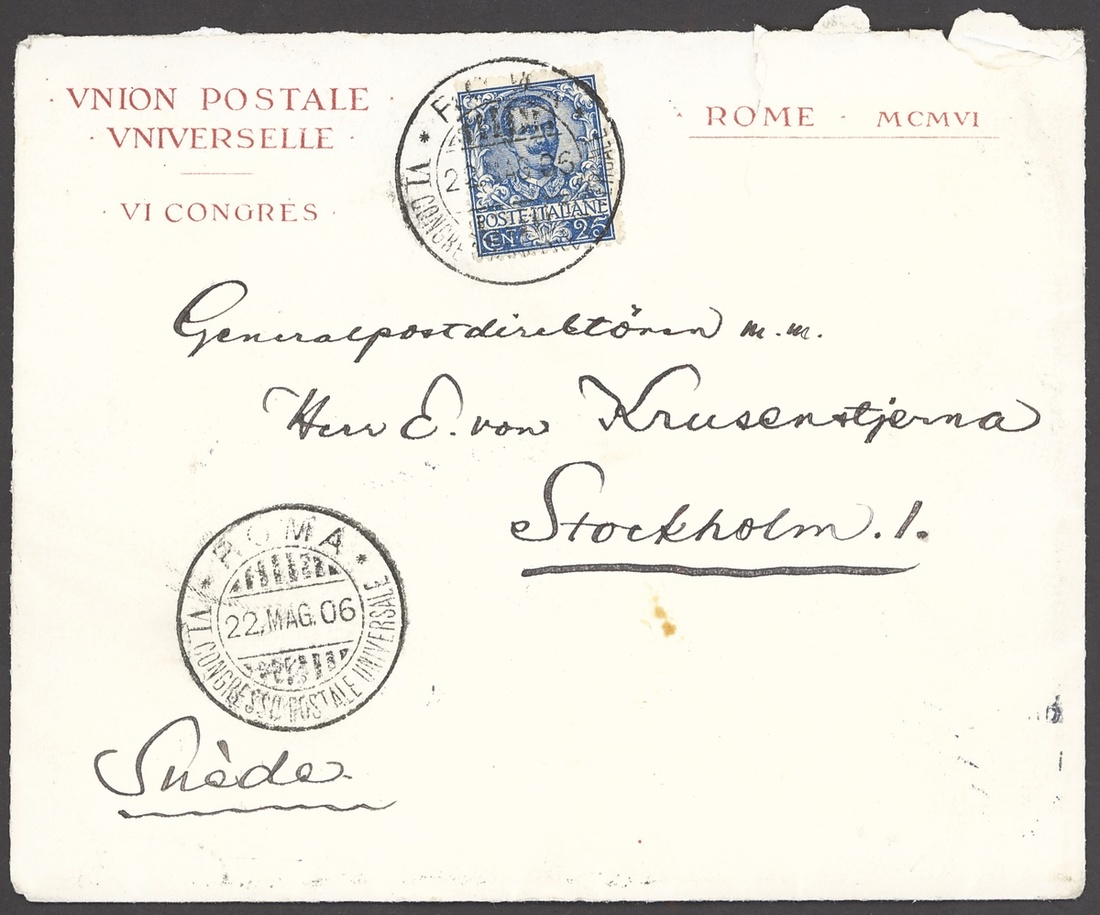 · VNION POSTALE ·
· VNIVERSELLE ·
· VI CONGRÈS ·
· ROME · MCMVI ·
POSTE ITALIANE
CEN 25
Generalpostdirektören m.m.
Herr E. von Krusenstjerna
Stockholm. 1.
* ROMA *
22.MAG.06
VI. CONGRESSO POSTALE UNIVERSALE
Suède